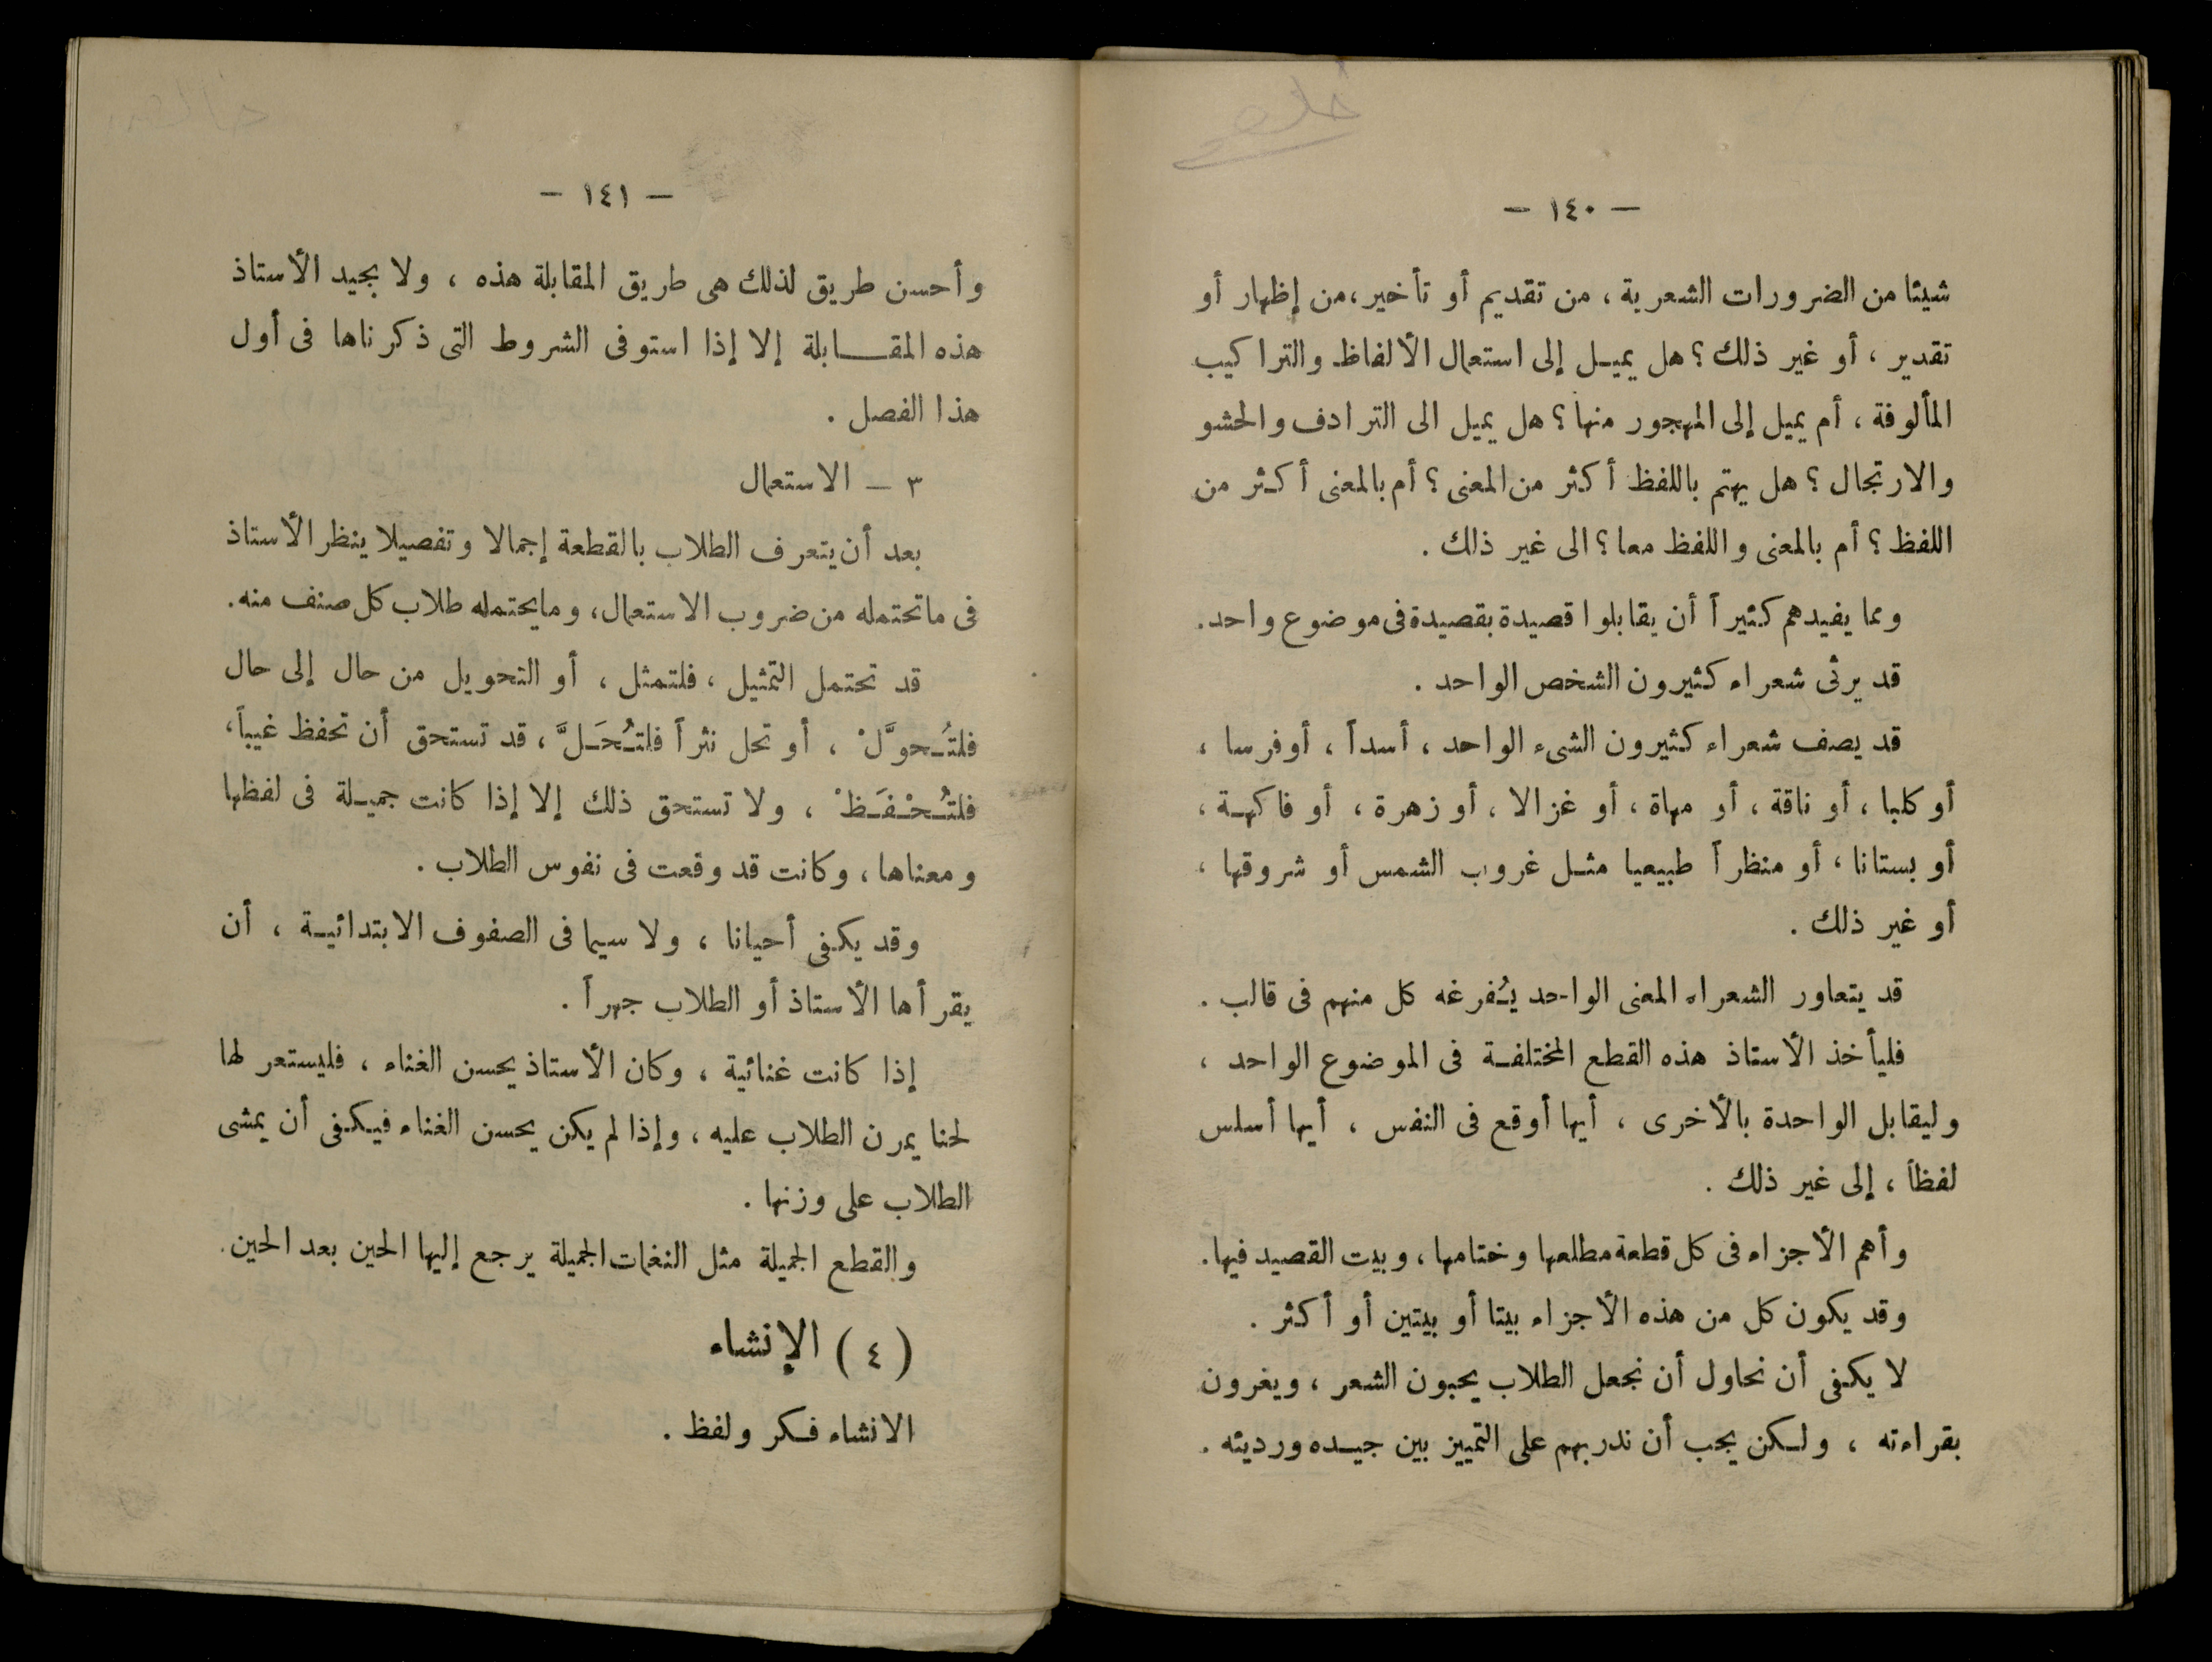 — ١٤٠ —
شيئا من الضرورات الشعرية ، من تقديم أو تأخير ، من إظهار أو
تقدير ، أو غير ذلك ؟ هل يميل إلى استعمال الألفاظ والتراكيب
المألوفة ، أم يميل إلى المهجور منها ؟ هل يميل الى الترادف والحشو
والارتجال ؟ هل يهتم باللفظ أكثر من المعنى ؟ أم بالمعنى أكثر من
اللفظ ؟ أم بالمعنى واللفظ معا ؟ الى غير ذلك .
ومما يفيدهم كثيراً أن يقابلوا قصيدة بقصيدة فى موضوع واحد .
قد يرثى شعراء كثيرون الشخص الواحد .
قد يصف شعراء كثيرون الشىء الواحد ، أسداً ، أو فرسا ،
أو كلبا ، أو ناقة ، أو مهاة ، أو غزالا ، أو زهرة ، أو فاكهة ،
أو بستانا ، أو منظراً طبيعيا مثل غروب الشمس أو شروقها ،
أو غير ذلك .
قد يتعاور الشعراء المعنى الواحد يُفرغه كل منهم فى قالب .
فليأخذ الأستاذ هذه القطع المختلفة فى الموضوع الواحد ،
وليقابل الواحدة بالأخرى ، أيها أوقع فى النفس ، أيها أسلس
لفظاً ، إلى غير ذلك .
وأهم الأجزاء فى كل قطعة مطلعها وختامها ، وبيت القصيد فيها .
وقد يكون كل من هذه الأجزاء بيتا أو بيتين أو أكثر .
لا يكفى أن نحاول أن نجعل الطلاب يحبون الشعر ، ويغرون
بقراءته ، ولكن يجب أن ندربهم على التمييز بين جيده ورديئه .
— ١٤١ —
وأحسن طريق لذلك هى طريق المقابلة هذه ، ولا يجيد الأستاذ
هذه المقابلة إلا إذا استوفى الشروط التى ذكرناها فى أول
هذا الفصل .
٣ — الاستعمال
بعد أن يتعرف الطلاب بالقطعة إجمالا وتفصيلا ينظر الأستاذ
فى ما تحتمله من ضروب الاستعمال ، وما يحتمله طلاب كل صنف منه .
قد تحتمل التمثيل ، فلتمثل ، أو التحويل من حال إلى حال
فلتُحوَّلْ ، أو تحل نثراً فلتُحَلَّ ، قد تستحق أن تحفظ غيباً ،
فلتُحْفَظْ ، ولا تستحق ذلك إلا إذا كانت جميلة فى لفظها
ومعناها ، وكانت قد وقعت فى نفوس الطلاب .
وقد يكفى أحيانا ، ولا سيما فى الصفوف الابتدائية ، أن
يقرأها الأستاذ أو الطلاب جهراً .
إذا كانت غنائية ، وكان الأستاذ يحسن الغناء ، فليستعر لها
لحنا يمرن الطلاب عليه ، وإذا لم يكن يحسن الغناء فيكفى أن يمشى
الطلاب على وزنها .
والقطع الجميلة مثل النغمات الجميلة يرجع إليها الحين بعد الحين .
( ٤ ) الإنشاء
الانشاء فكر ولفظ .